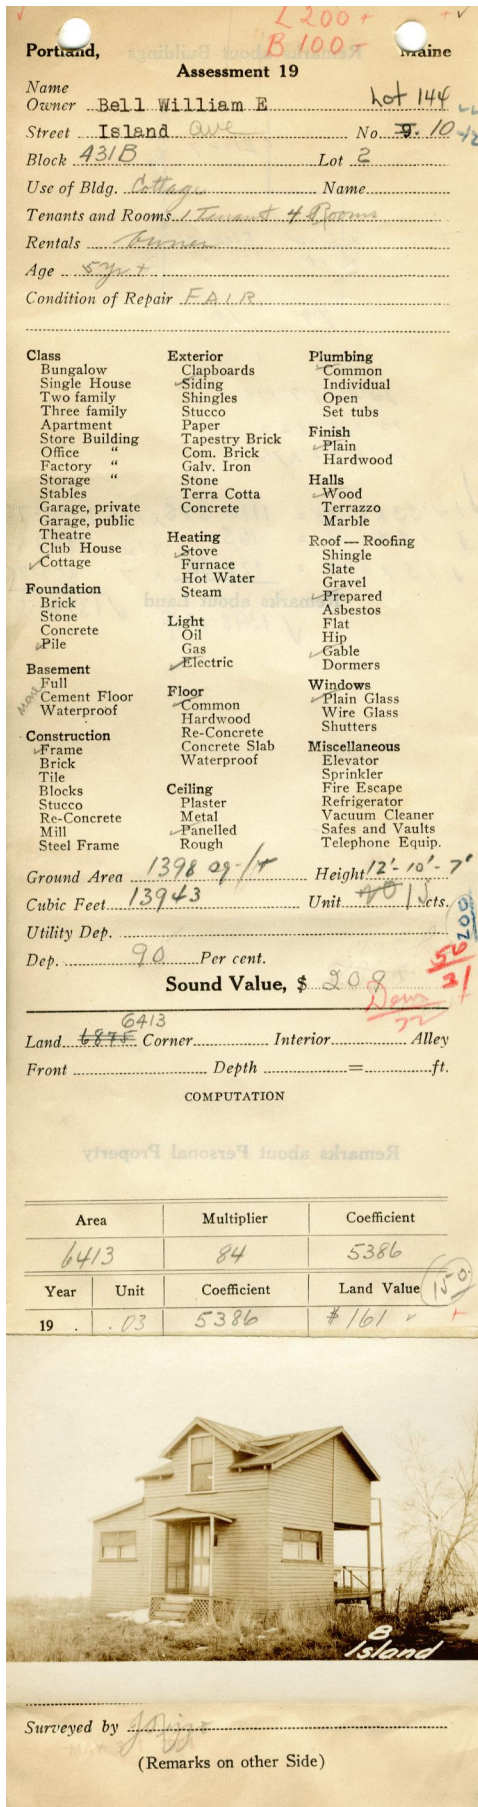 L 200 +
B 100 +
Portland, Maine
Assessment 19
Name
Owner Bell William E Lot 144
Street Island ave No. 9. 10
Block 431B Lot 2
Use of Bldg. Cottage Name
Tenants and Rooms 1 Tenant 4 Rooms
Rentals Owner
Age 5 yr +
Condition of Repair FAIR
Class
Bungalow
Single House
Two family
Three family
Apartment
Store Building
Office "
Factory "
Storage "
Stables
Garage, private
Garage, public
Theatre
Club House
Cottage
Foundation
Brick
Stone
Concrete
Pile
Basement
None
Full
Cement Floor
Waterproof
Construction
Frame
Brick
Tile
Blocks
Stucco
Re-Concrete
Mill
Steel Frame
Exterior
Clapboards
Siding
Shingles
Stucco
Paper
Tapestry Brick
Com. Brick
Galv. Iron
Stone
Terra Cotta
Concrete
Heating
Stove
Furnace
Hot Water
Steam
Light
Oil
Gas
Electric
Floor
Common
Hardwood
Re-Concrete
Concrete Slab
Waterproof
Ceiling
Plaster
Metal
Panelled
Rough
Plumbing
Common
Individual
Open
Set tubs
Finish
Plain
Hardwood
Halls
Wood
Terrazzo
Marble
Roof — Roofing
Shingle
Slate
Gravel
Prepared
Asbestos
Flat
Hip
Gable
Dormers
Windows
Plain Glass
Wire Glass
Shutters
Miscellaneous
Elevator
Sprinkler
Fire Escape
Refrigerator
Vacuum Cleaner
Safes and Vaults
Telephone Equip.
Ground Area 1398 Height 12'-10'-7'
Cubic Feet 13943 Unit 15 cts.
Utility Dep. 200
Dep. 90 Per cent. 50
Sound Value, $ 209 31
6413
Land 6875 Corner Interior Alley
Front Depth = ft.
COMPUTATION
Remarks about Personal Property
Area Multiplier Coefficient
6413 84 5386
Year Unit Coefficient Land Value 150
19 . .03 5386 $161
8
Island
Surveyed by
(Remarks on other Side)